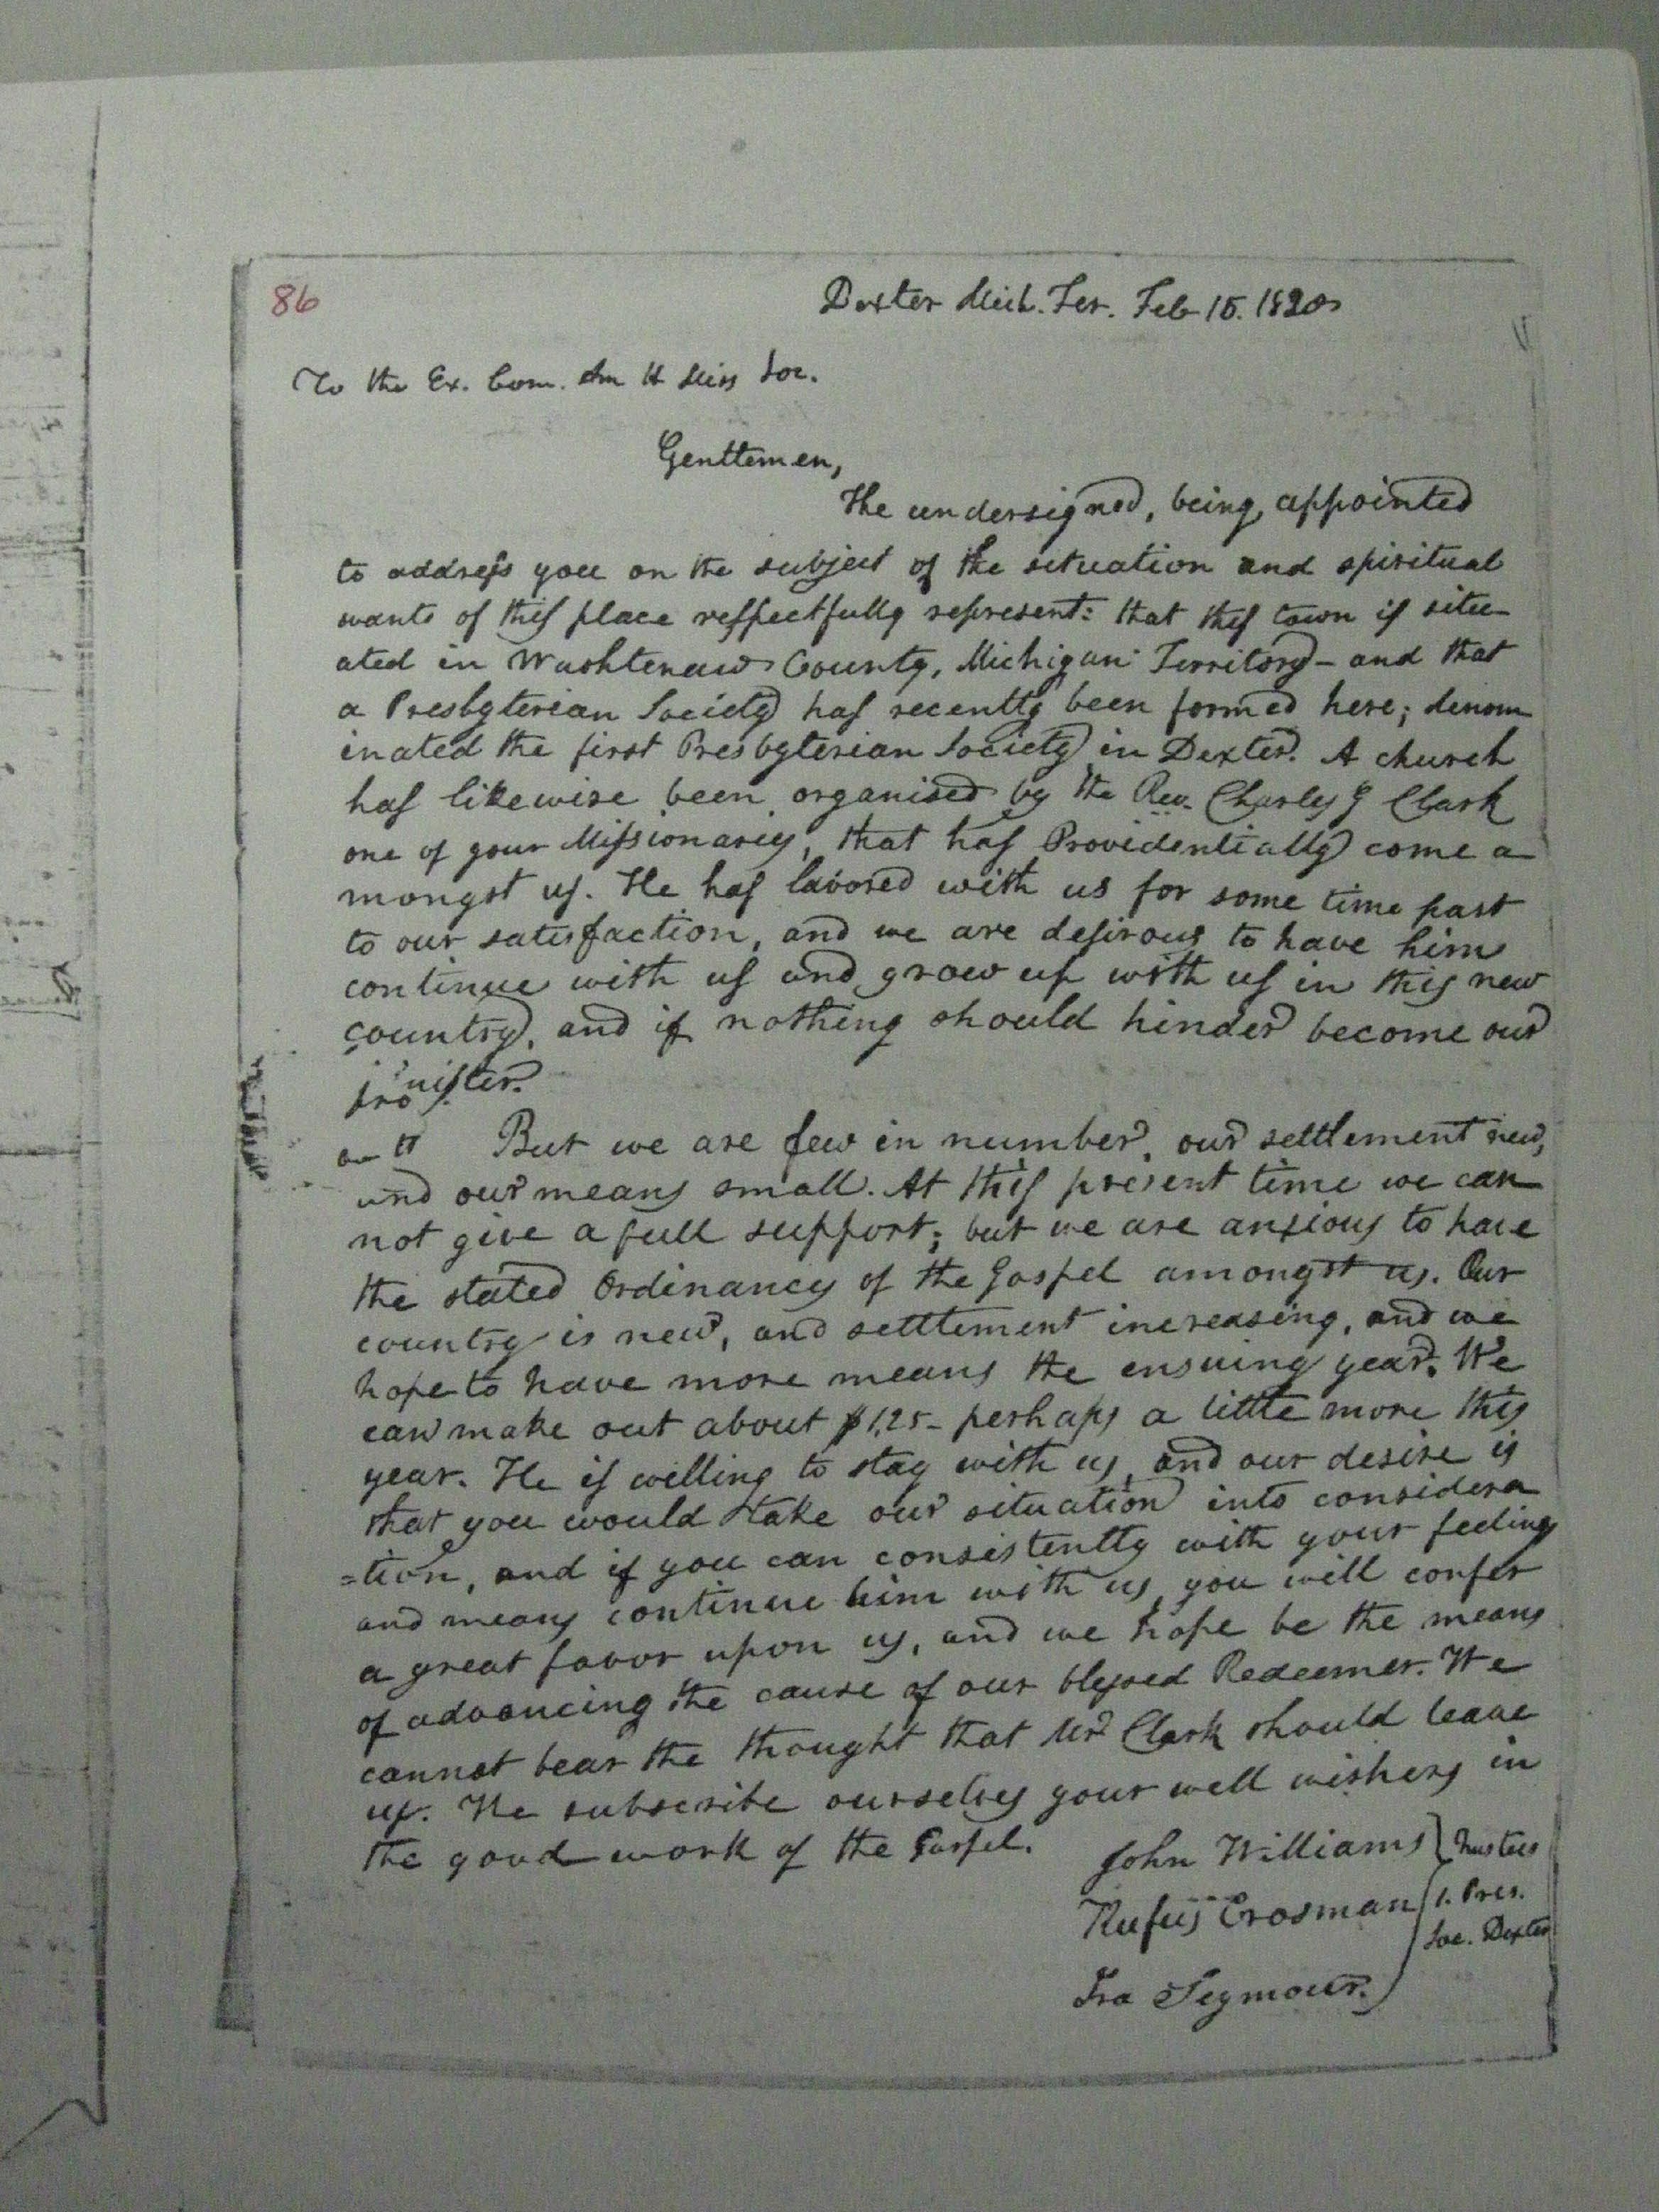 86
Dexter Mich. Ter. Feb 15. 1830
To the Ex. Com. Am H Miss Soc.
Genttemen,
The undersigned, being appointed
to address you on the subject of the situation and spiritual
wants of this place respectfully represent: that this town is situ
ated in Washtenaw County, Michigan Territory - and that
a Presbyterian Society has recently been formed here; denom
inated the first Presbyterian Society in Dexter. A church
has likewise been organised by the Rev. Charles G Clark
one of your Missionaries, that has Providentially come a
mongst us. He has labored with us for some time past
to our satisfaction, and we are desirous to have him
continue with us and grow up with us in this new
country, and if nothing should hinder become our
But we are few in number, our settlement new,
and our means small. At this present time we can
not give a full support; but we are anxious to have
the stated Ordinances of the Gospel amongst us. Our
country is new, and settlement increasing, and we
hope to have more means the ensuing year. We
can make out about $125 - perhaps a little more this
year. He is willing to stay with us, and our desire is
that you would take our situation into considera
=tion, and if you can consistently with your feelings
and means continue him with us, you will confer
a great favor upon us, and we hope be the means
of advancing the cause of our blessed Redeemer. We
cannot bear the thought that Mr Clark should leave
us. We subscribe ourselves your well wishers in
the good work of the Gospel.
John Williams } Trustees
Rufus Crosman 1. Pres.
Soc. Dexter
Ira Seymour.